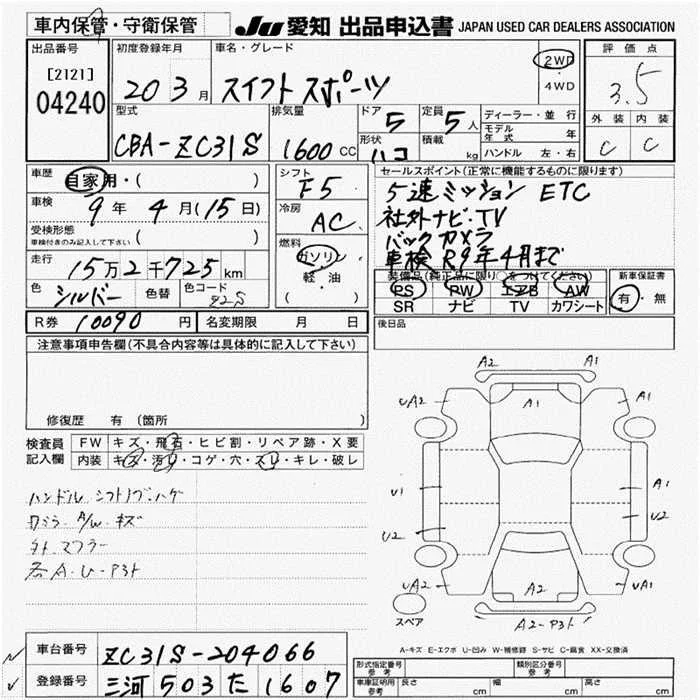 車内保管・守衛保管
JU 愛知 出品申込書 JAPAN USED CAR DEALERS ASSOCIATION
出品番号
[2121]
04240
初度登録年月
20 3月
車名・グレード
スイフトスポーツ
2WD
・
4WD
評価点
3.5
外装 内装
C C
型式
CBA-ZC31S
排気量
1600 CC
ドア 5
形状 ハコ
定員 5人
積載 kg
ディーラー・並行
モデル年式 年
ハンドル 左・右
車歴 自家用・( )
車検 9年 4月(15日)
受検形態
車検付きのみ記入して下さい ( )
走行 15万2千725km
色 シルバー 色替 色コード
シフト F5
冷房 AC
燃料
ガソリン
軽・油
( )
セールスポイント(正常に機能するものに限ります)
5速ミッション ETC
社外ナビ・TV
バックカメラ
車検 R9年4月まで
装備品(純正品に限り○をつけてください)
PS PW エアB AW
SR ナビ TV カワシート
新車保証書
有・無
R券 10090円 名変期限 月 日
後日品
注意事項申告欄(不具合内容等は具体的に記入して下さい)
修復歴 有(箇所 )
検査員記入欄
FW キズ・飛石・ヒビ割・リペア跡・X要
内装 キズ・汚レ・コゲ・穴・スレ・キレ・破レ
ハンドル シフトノブ・ハゲ
A/W キズ
外 マフラー
各A・U・Pヨト
A2 A1
UA2 A1 A1
U1 A1
U2 U2
UA2 A2 UA1
A2-Pヨト
スペア
A-キズ E-エクボ U-凹み W-補修跡 S-サビ C-腐食 XX-交換済
車台番号 ZC31S-204066
登録番号 三河 503 た 1607
形式指定番号 参考
類別区分番号 参考
車庫証明用 参考
長さ cm 幅 cm 高さ cm